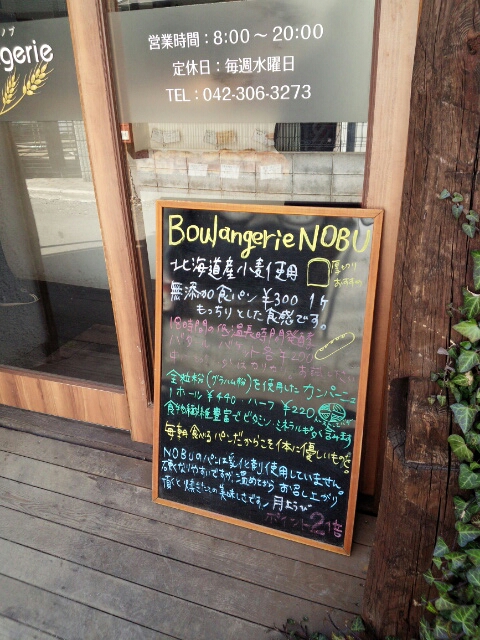 gerie
営業時間：8:00～20:00
定休日：毎週水曜日
TEL：042-306-3273
Boulangerie NOBU
北海道産小麦使用
厚切り
おすすめ
無添加食パン ¥300 1ケ
もっちりとした食感です。
18時間の低温長時間発酵
全粒粉(グラハム粉)を使用したカンパーニュ
1ホール¥440 ハーフ ¥220
食物繊維豊富でビタミン・ミネラルも多く含みます
毎朝食べるパンだからこそ体に優しいもので。
NOBUのパンは乳化剤使用していません。
硬くなりやすいですが、温めてから お召し上がり
頂くと焼きたての美味しさです！
月ようび
ポイント2倍